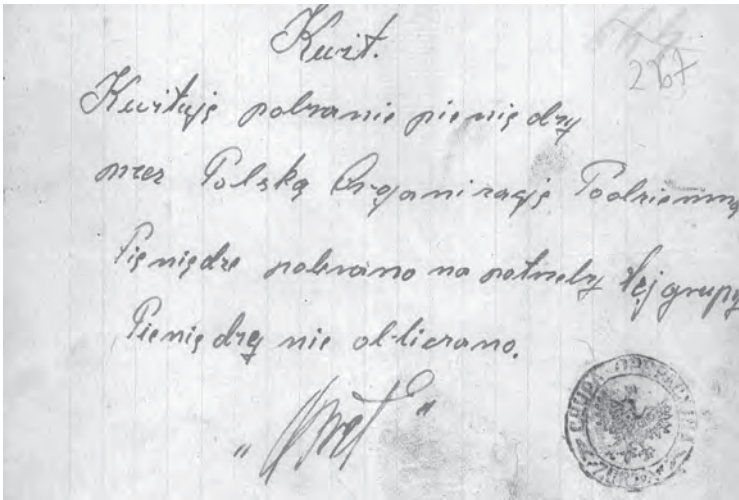 Kwit.
267
Kwituję pobranie pieniędzy
przez Polską Organizację Podziemną
Pieniądze pobrano na potrzeby tej grupy
Pieniędzy nie obliczano.
GRUPA OPERACYJNA